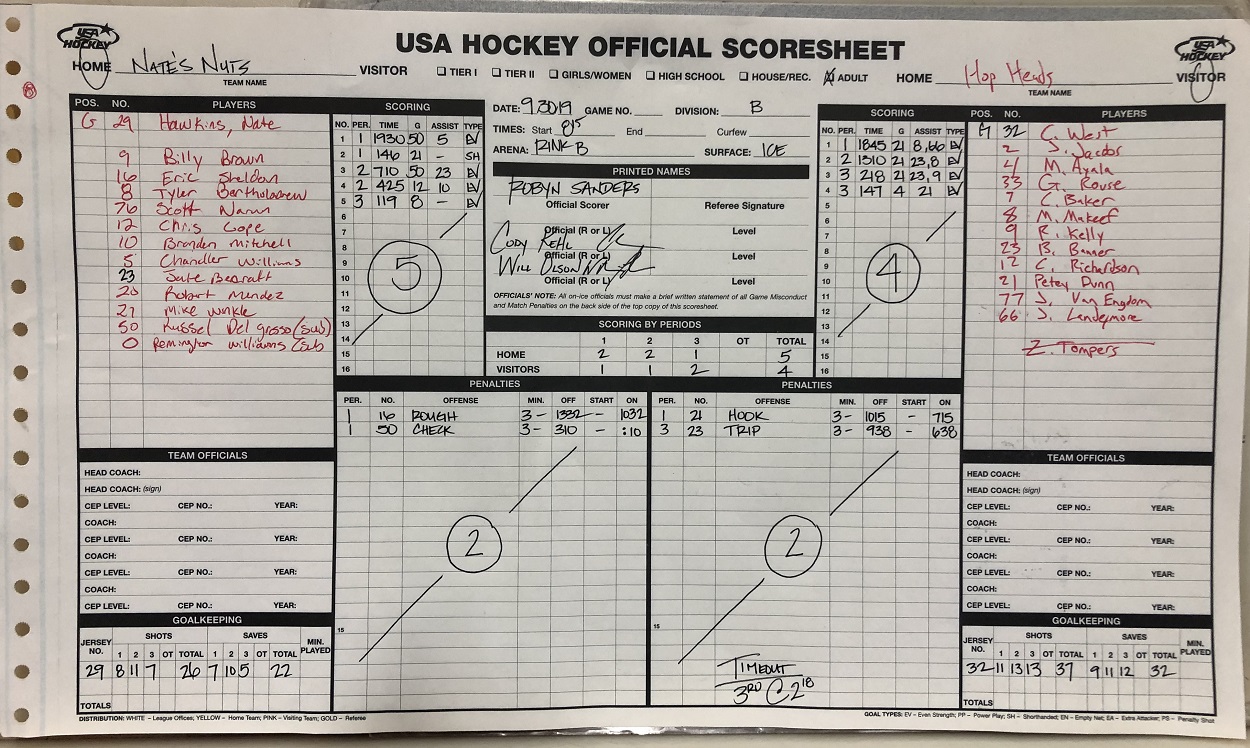 USA HOCKEY OFFICIAL SCORESHEET
USA HOCKEY
USA HOCKEY
HOME NATE'S NUTS VISITOR TIER I TIER II GIRLS/WOMEN HIGH SCHOOL HOUSE/REC. ADULT HOME Hop Heads VISITOR
TEAM NAME TEAM NAME
POS. NO. PLAYERS
G 29 Hawkins, Nate
9 Billy Brown
16 Eric Sheldon
8 Tyler Bartholomew
76 Scott
12 Chris Cope
10 Branden Mitchell
5 Chandler Williams
23 Jate
20 Robert Mendez
21 Mike Winkle
50 Russel Del grosso (sub)
0 Remington Williams (sub
SCORING
NO. PER. TIME G ASSIST TYPE
1 1 1930 50 5 EV
2 1 146 21 - SH
3 2 710 50 23 EV
4 2 425 12 10 EV
5 3 119 8 - EV
6
7
8
9
10
11
12
13
14
15
16
5
DATE: 93019 GAME NO. DIVISION: B
TIMES: Start 815 End Curfew
ARENA: RINK B SURFACE: ICE
PRINTED NAMES
ROBYN SANDERS
Official Scorer Referee Signature
Official (R or L) Level
CODY KEHL
Official (R or L) Level
WILL OLSON
Official (R or L) Level
OFFICIALS' NOTE: All on-ice officials must make a brief written statement of all Game Misconduct
and Match Penalties on the back side of the top copy of this scoresheet.
SCORING BY PERIODS
1 2 3 OT TOTAL
HOME 2 2 1 5
VISITORS 1 1 2 4
SCORING
NO. PER. TIME G ASSIST TYPE
1 1 1845 21 8,66 EV
2 2 1310 21 23,8 EV
3 3 218 21 23,9 EV
4 3 147 4 21 EV
5
6
7
8
9
10
11
12
13
14
15
16
4
POS. NO. PLAYERS
G 32 C. West
2 J. Jacobs
4 M. Ayala
33 G. Rouse
7 C. Baker
8 M. Makeef
9 R. Kelly
23 B. Banner
12 C. Richardson
21 Petey Dunn
77 J. Van Engdom
66 J. Landymore
Z. Tompers
PENALTIES
PER. NO. OFFENSE MIN. OFF START ON
1 16 ROUGH 3 - 1332 - 1032
1 50 CHECK 3 - 310 - :10
2
15
PENALTIES
PER. NO. OFFENSE MIN. OFF START ON
1 21 HOOK 3 - 1015 - 715
3 23 TRIP 3 - 938 - 638
2
15
TIMEOUT
3RD @ 218
TEAM OFFICIALS
HEAD COACH:
HEAD COACH: (sign)
CEP LEVEL: CEP NO.: YEAR:
COACH:
CEP LEVEL: CEP NO.: YEAR:
COACH:
CEP LEVEL: CEP NO.: YEAR:
COACH:
CEP LEVEL: CEP NO.: YEAR:
GOALKEEPING
JERSEY NO. SHOTS SAVES MIN. PLAYED
1 2 3 OT TOTAL 1 2 3 OT TOTAL
29 8 11 7 26 7 10 5 22
TOTALS
TEAM OFFICIALS
HEAD COACH:
HEAD COACH: (sign)
CEP LEVEL: CEP NO.: YEAR:
COACH:
CEP LEVEL: CEP NO.: YEAR:
COACH:
CEP LEVEL: CEP NO.: YEAR:
COACH:
CEP LEVEL: CEP NO.: YEAR:
GOALKEEPING
JERSEY NO. SHOTS SAVES MIN. PLAYED
1 2 3 OT TOTAL 1 2 3 OT TOTAL
32 11 13 13 37 9 11 12 32
TOTALS
DISTRIBUTION: WHITE – League Offices; YELLOW – Home Team; PINK – Visiting Team; GOLD – Referee
GOAL TYPES: EV – Even Strength; PP – Power Play; SH – Shorthanded; EN – Empty Net; EA – Extra Attacker; PS – Penalty Shot